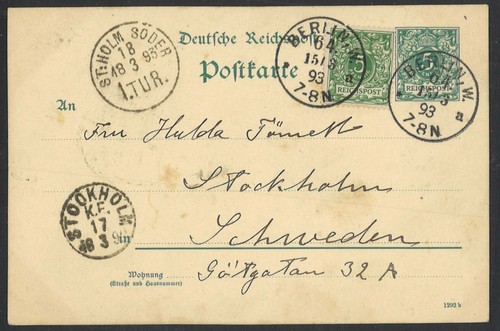 Deutsche Reichspost
Postkarte
ST:HOLM SÖDER
18
18 3 93
1.TUR.
BERLIN.W.
64
15/3
93
7-8N
a
5
REICHSPOST
BERLIN.W.
64
15/3
93
7-8N
a
5
REICHSPOST
An
Fru Hulda
Stockholm
STOCKHOLM
K.E.
17
18 3 93
in
Schweden
Götgatan 32 A
Wohnung
(Straße und Hausnummer)
1292 b